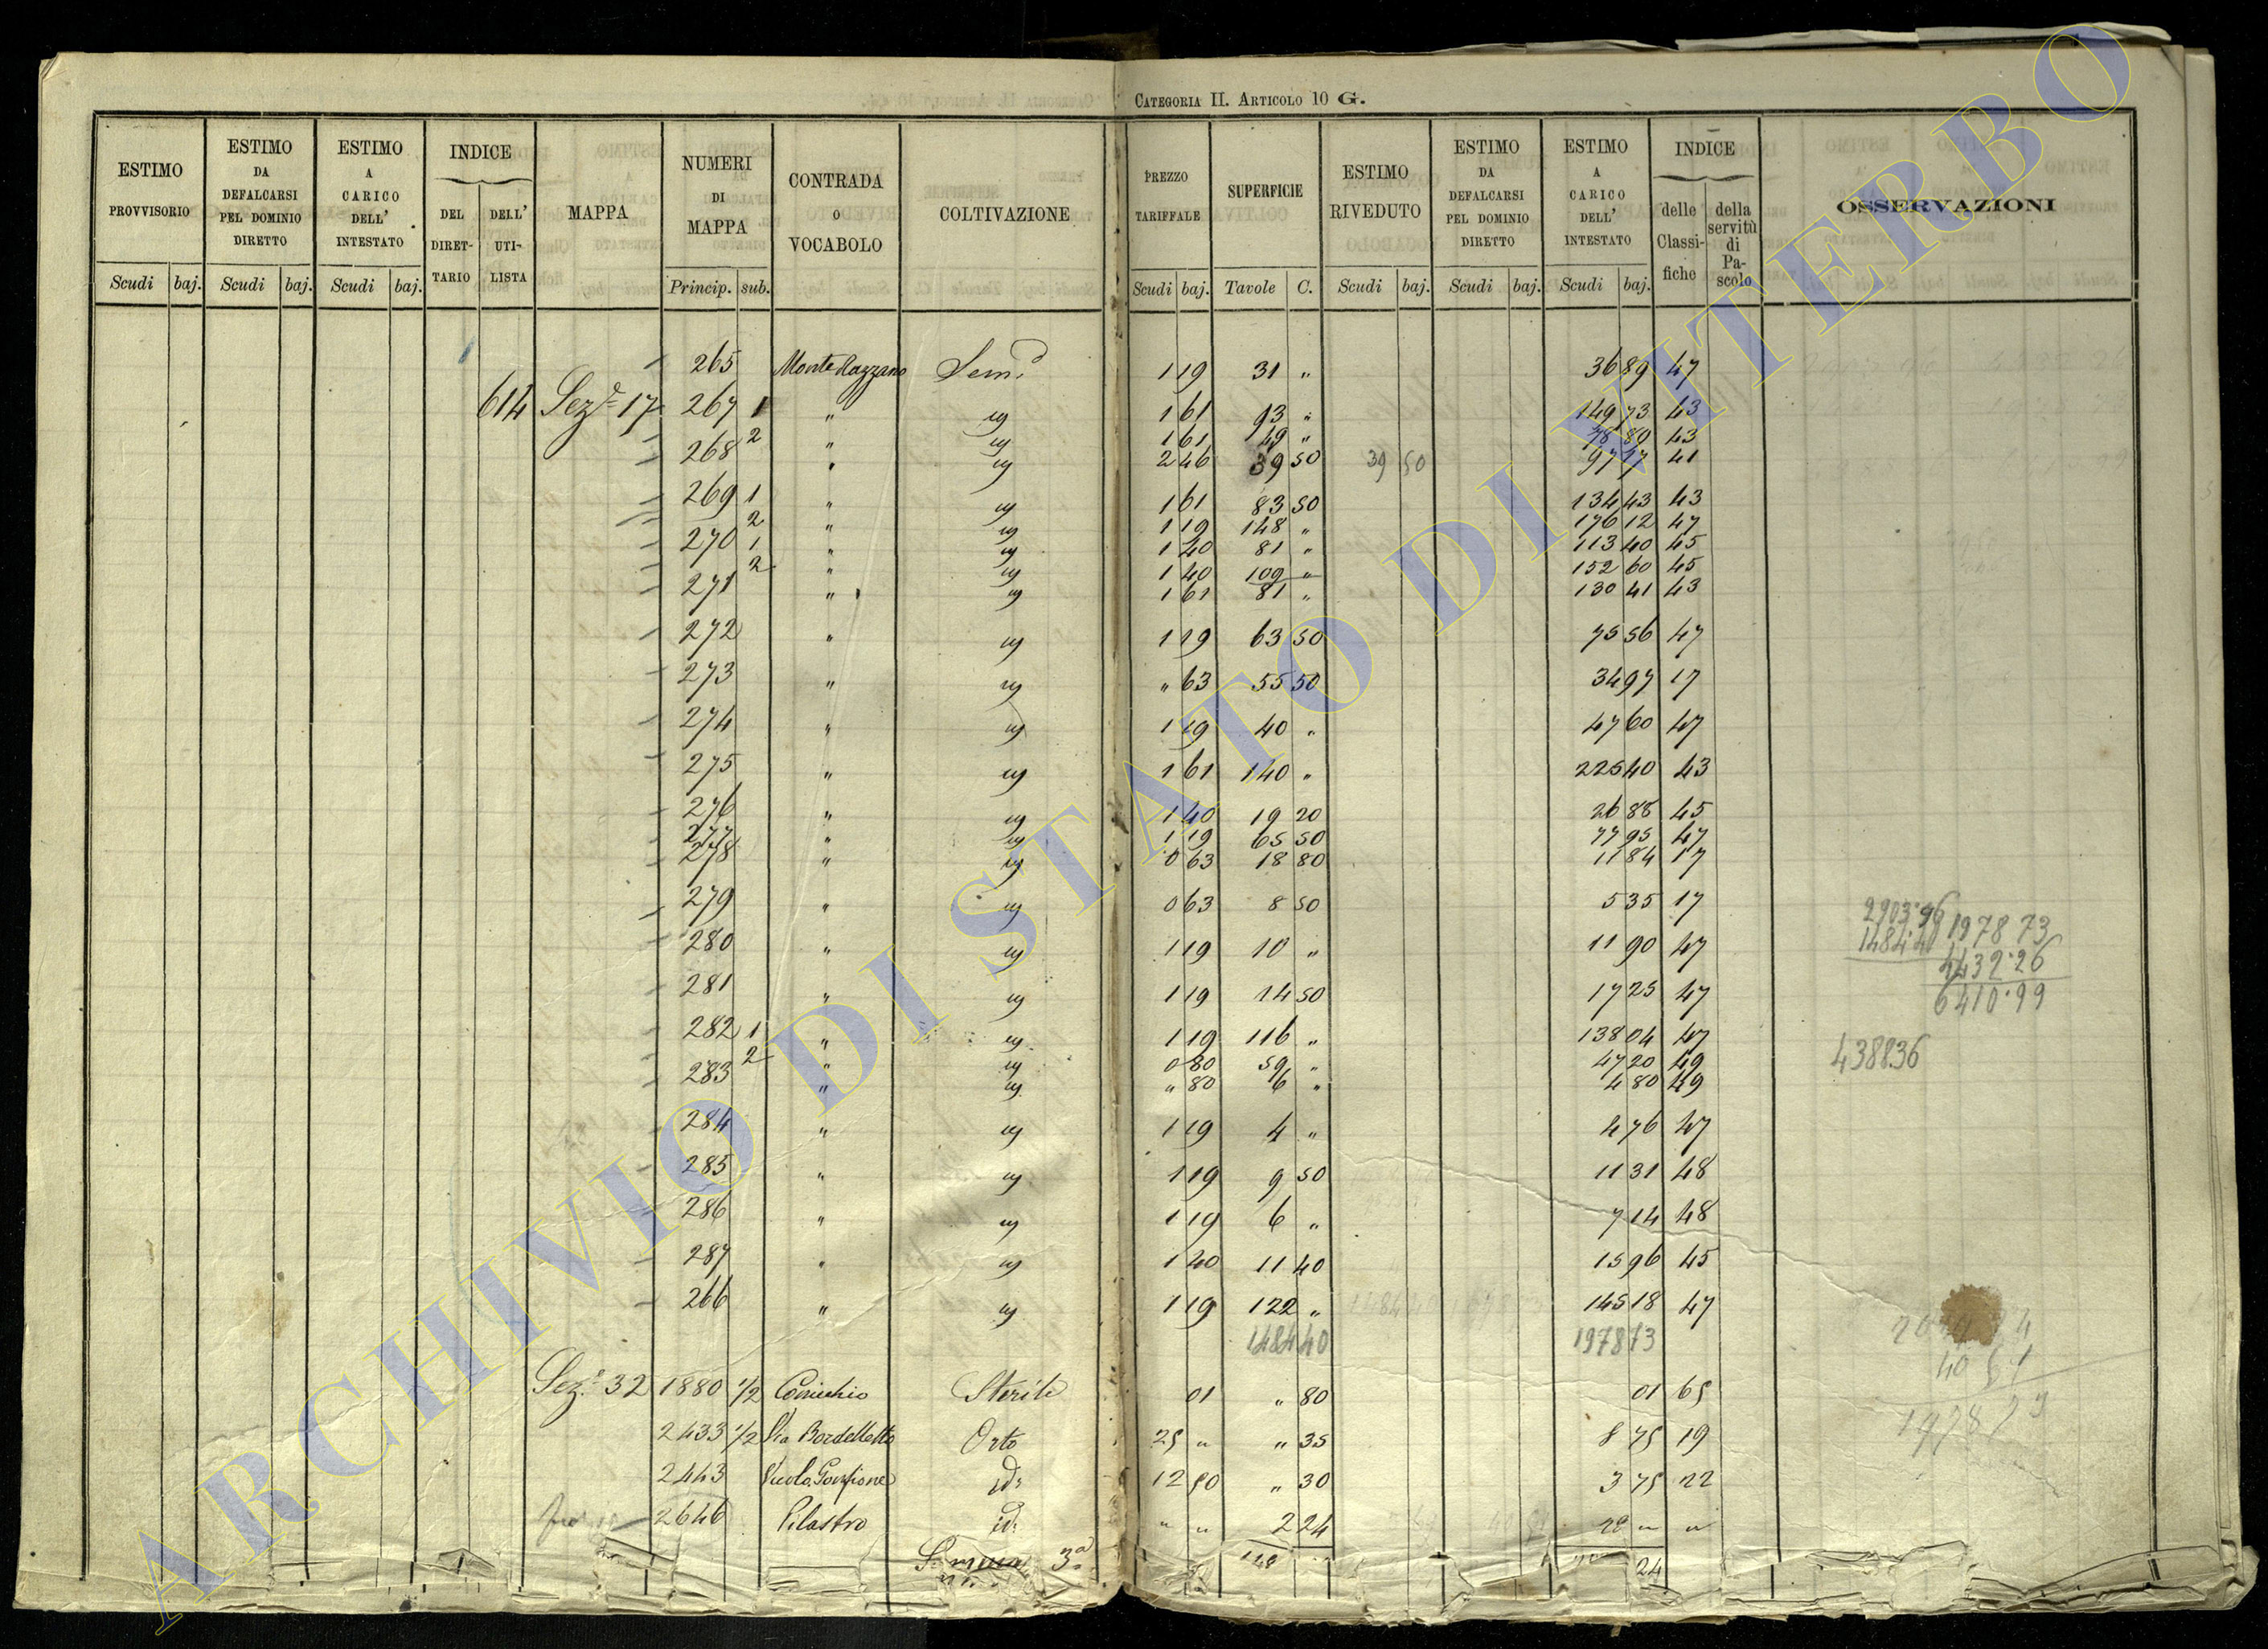 CATEGORIA II. ARTICOLO 10 G.
ESTIMO PROVVISORIO Scudi baj.
ESTIMO DA DEFALCARSI PEL DOMINIO DIRETTO Scudi baj.
ESTIMO A CARICO DELL' INTESTATO Scudi baj.
INDICE DEL DIRETTARIO DELL' UTILISTA
MAPPA
NUMERI DI MAPPA Princip. sub.
CONTRADA O VOCABOLO
COLTIVAZIONE
PREZZO TARIFFALE Scudi baj.
SUPERFICIE Tavole C.
ESTIMO RIVEDUTO Scudi baj.
ESTIMO DA DEFALCARSI PEL DOMINIO DIRETTO Scudi baj.
ESTIMO A CARICO DELL' INTESTATO Scudi baj.
INDICE delle Classifiche della servitù di Pascolo
OSSERVAZIONI
265 Monte Razzano Sem.d 1 19 31 " 36 89 47
614 Sez.e 17 267 1 " " 1 61 93 " 149 73 43
2 " " 1 61 49 " 78 89 43
268 " " 2 46 39 50 39 50 97 17 41
269 1 " " 1 61 83 50 134 43 43
2 " " 1 19 148 " 176 12 47
270 1 " " 1 40 81 " 113 40 45
2 " " 1 40 109 " 152 60 45
271 " " 1 61 81 " 130 41 43
272 " " 1 19 63 50 75 56 47
273 " " " 63 55 50 34 97 17
274 " " 1 19 40 " 47 60 47
275 " " 1 61 140 " 225 40 43
276 " " 1 40 19 20 26 88 45
277 " " 1 19 65 50 77 95 47
278 " " 0 63 18 80 11 84 17
279 " " 0 63 8 50 5 35 17
280 " " 1 19 10 " 11 90 47
281 " " 1 19 14 50 17 25 47
282 1 " " 1 19 116 " 138 04 47
2 " " 0 80 59 " 47 20 49
283 " " " 80 6 " 4 80 49
284 " " 1 19 4 " 4 76 47
285 " " 1 19 9 50 11 31 48
286 " " 1 19 6 " 7 14 48
287 " " 1 40 11 40 15 96 45
266 " " 1 19 122 " 145 18 47
1484 40 1978 73
Sez.e 32 1880 1/2 Cunicchio Sterile 01 " 80 01 65
2433 1/2 Via Bordelletto Orto 25 " " 35 8 75 19
2443 Vicolo Gonfione id: 12 50 " 30 3 75 22
2646 Pilastro id: " " 2 24 " "
Somma 3a 24
2903.96 1978 73
1484.40 4432.26
6410.99
4388.36
40 51
1978 73
ARCHIVIO DI STATO DI VITERBO